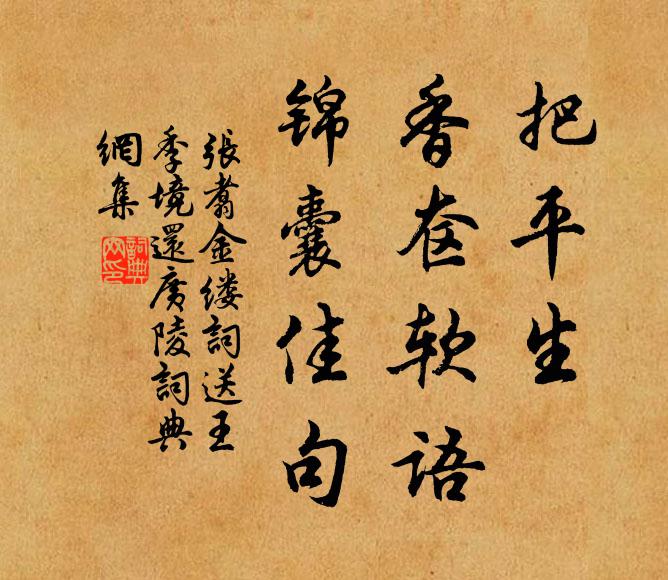 把平生
香奁软语
锦囊佳句
張翥金缕詞送王
季境還廣陵詞典
網集
詞典網印